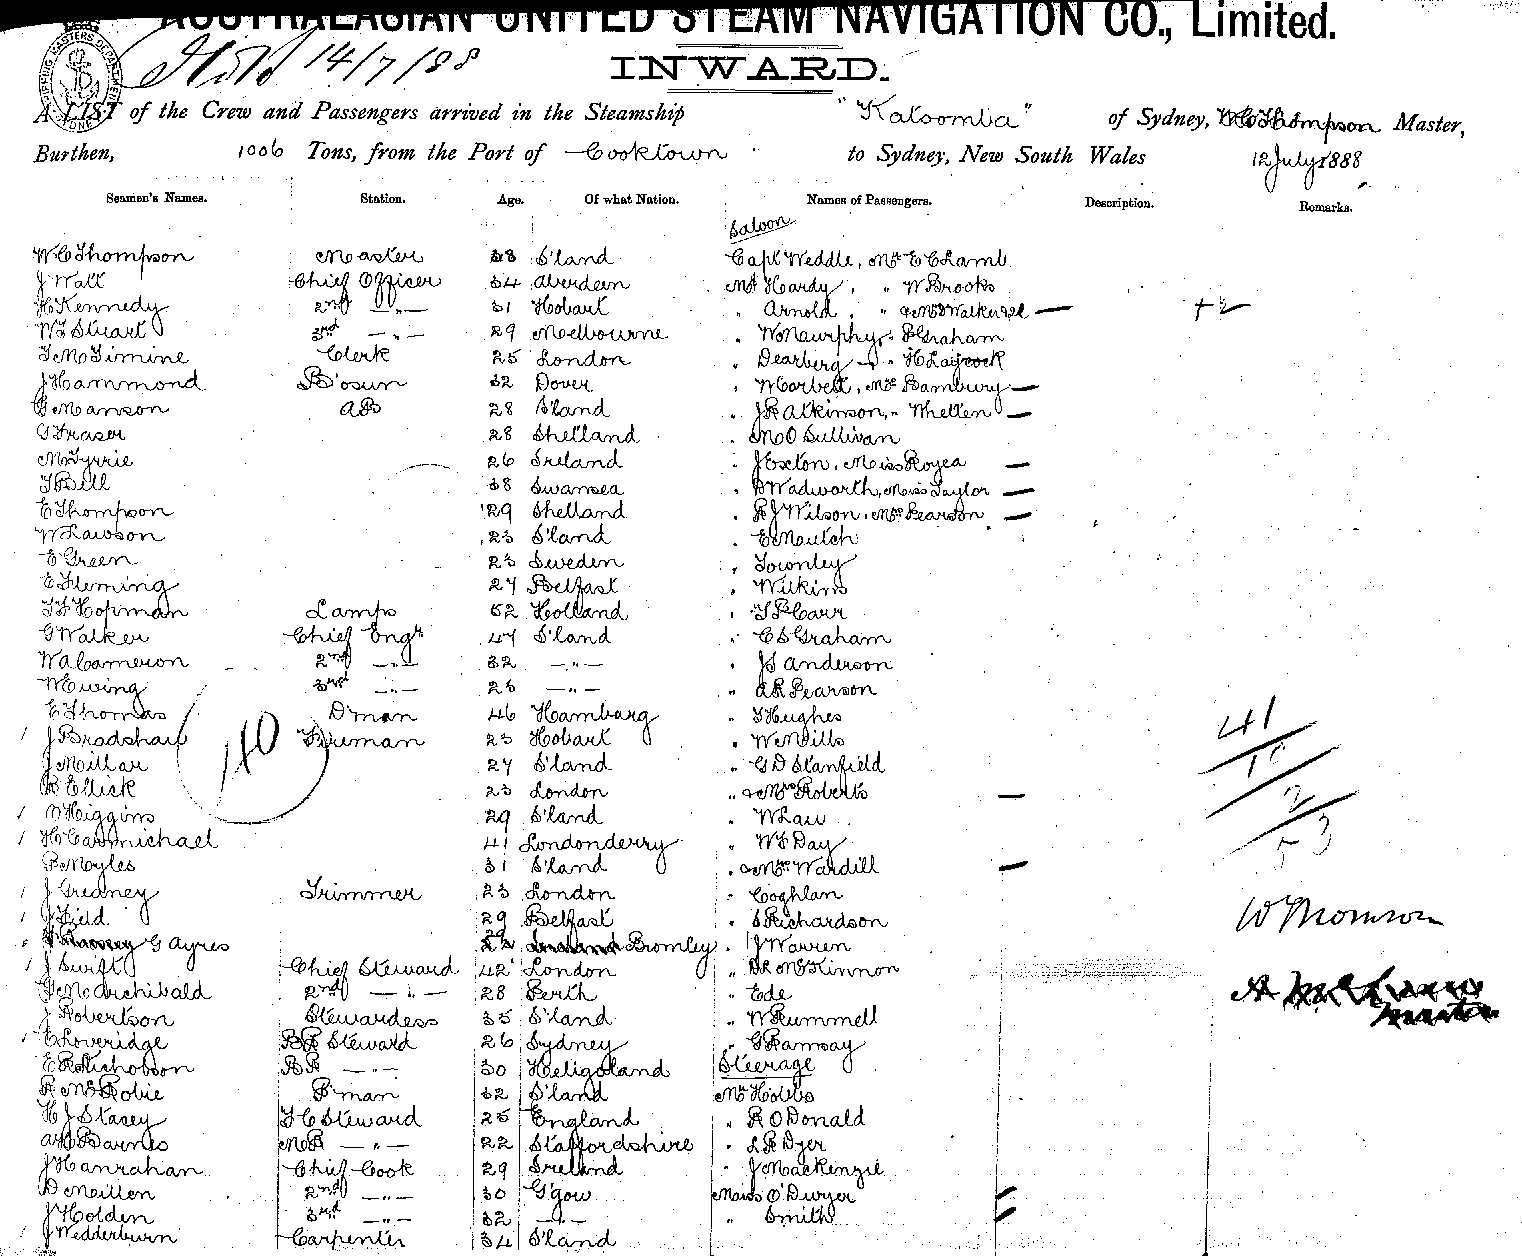 AUSTRALASIAN UNITED STEAM NAVIGATION CO., Limited.
14/7/88
INWARD.
A LIST of the Crew and Passengers arrived in the Steamship "Katoomba" of Sydney, W C Thompson Master,
Burthen, 1006 Tons, from the Port of Cooktown to Sydney, New South Wales 12 July 1888
Seamen's Names. Station. Age. Of what Nation. Names of Passengers. Description. Remarks.
Saloon
W C Thompson Master 38 S'land Capt Weddle, Mr E C Lamb
J Watt Chief Officer 34 Aberdeen Mr Hardy, " W Brooks
H Kennedy 2nd —"— 31 Hobart " Arnold, " & Mrs Walker
W F Stuart 3rd —"— 29 Melbourne " W Murphy, " P Graham
Clerk 25 London " Dearberg " H Laycock
J Hammond B'osun 32 Dover " W Corbett, Mrs Bambury
G Manson AB 28 S'land " J R Atkinson, " Whetten
G Fraser 28 Shetland " M O Sullivan
26 Ireland " J Exton, Miss Royea
T Bell 38 Swansea " D Wadworth, Miss Taylor
E Thompson 29 Shetland " R J Wilson, Mrs Pearson
W Lawson 23 S'land " E Meutch
E Green 23 Sweden " Townley
E Fleming 27 Belfast " Wilkins
T F Hopman Lamps 52 Holland " T P Carr
G Walker Chief Engr 47 S'land " C S Graham
W A Cameron 2nd —"— 32 —"— " J S Anderson
W Ewing 3rd —"— 25 —"— " A R Pearson
E Thomas D'man 46 Hamburg " T Hughes
J Bradshaw Fireman 23 Hobart " W Mills
J Millar 27 S'land " G D Stanfield
R Ellick 23 London " & Mrs Roberts
D Higgins 29 S'land " W Law
H Carmichael 41 Londonderry " W S Day
P Myles 31 S'land " & Mrs Wardill
J Greaney Trimmer 23 London " Coghlan
J Field 29 Belfast " S Richardson
G Ayres 29 Bromley " J Warren
J Swift Chief Steward 42 London " D R McKinnon
G M Archibald 2nd —"— 28 Perth " Ede
J Robertson Stewardess 35 S'land " W Rummell
E Loveridge BR Steward 26 Sydney " G Ramsay
E R Nichobson BR —"— 30 Heligoland Steerage
R McRobie P'man 32 S'land Mr Hobbs
H J Stacey F C Steward 25 England " R O Donald
A H Barnes MR —"— 22 Staffordshire " L R Dyer
J Hanrahan Chief Cook 29 Ireland " J Mackenzie
D Meillen 2nd —"— 30 G'gow Miss O'Dwyer
J Holden 3rd —"— 32 —"— " Smith
J Wedderburn Carpenter 34 S'land
40
41
10
2
53
W Thomson